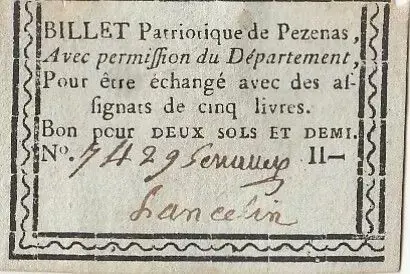 BILLET Patriotique de Pezenas,
Avec permiſſion du Département,
Pour être échangé avec des aſ-
ſignats de cinq livres.
Bon pour DEUX SOLS ET DEMI.
No. 7429 II—
Lancelin